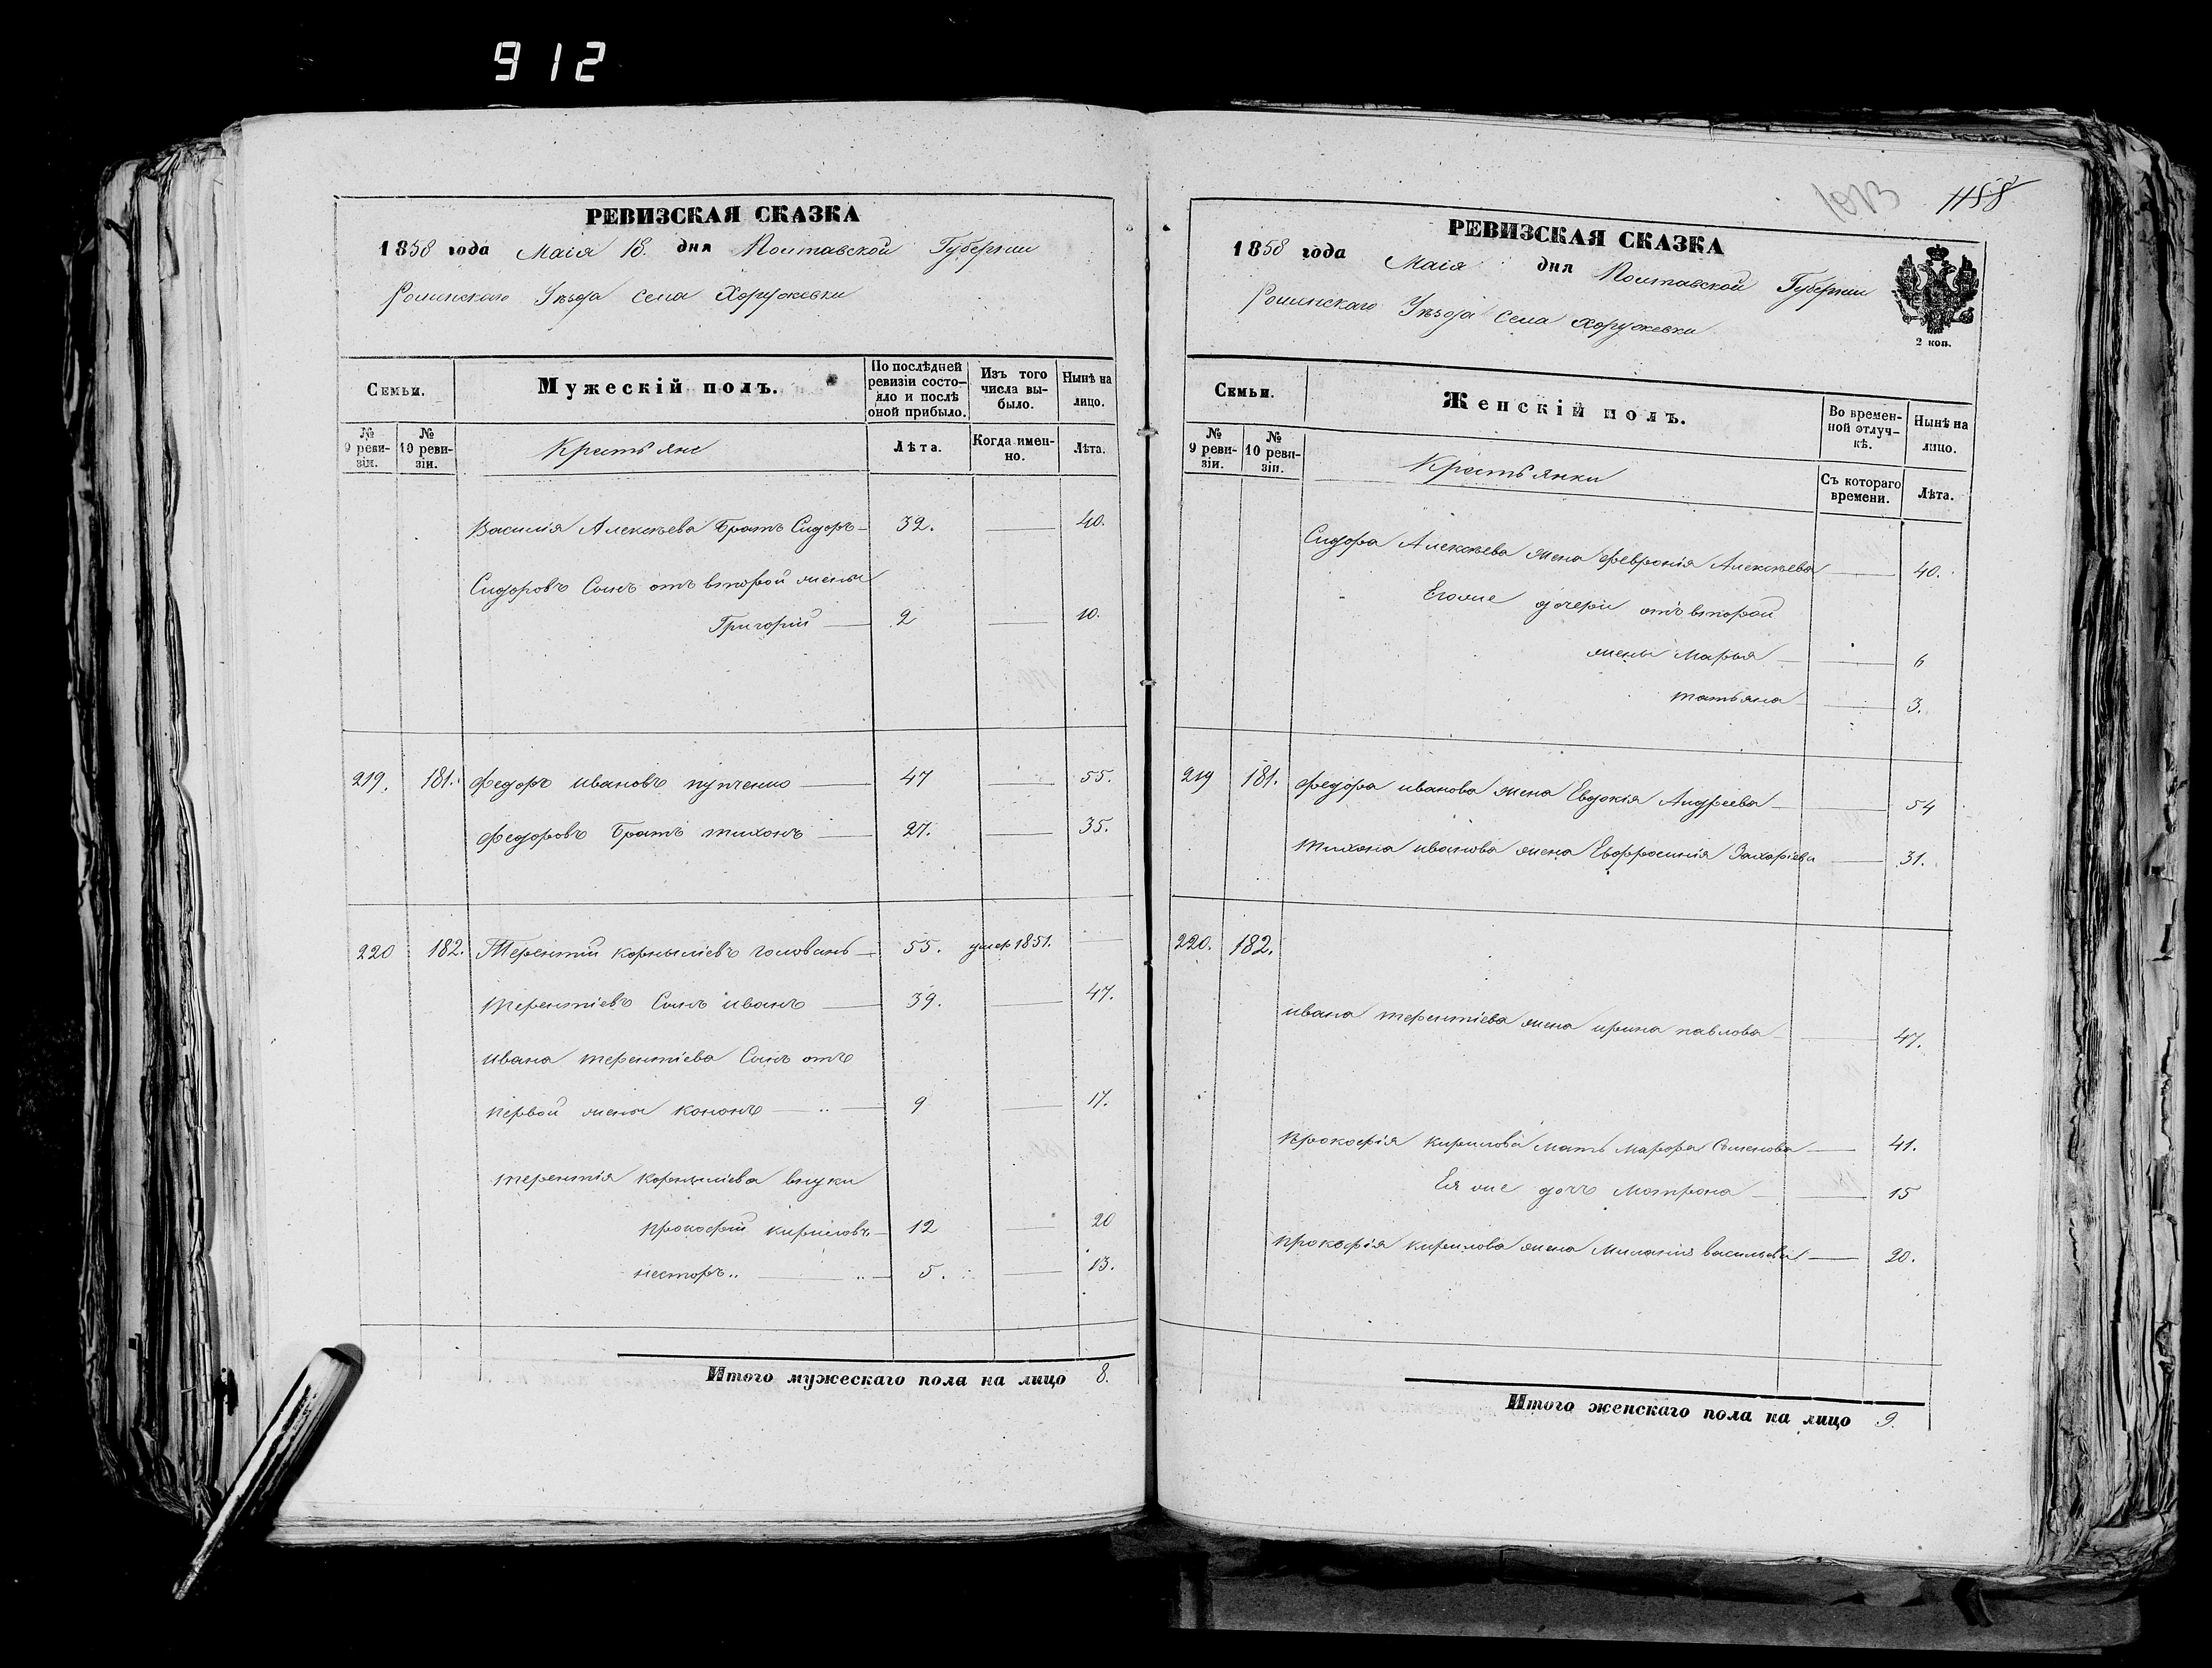 912
РЕВИЗСКАЯ СКАЗКА
1858 года Маія 18. дня Полтавской Губерніи
Роменскаго Уѣзда Села Хоружевки
Семьи.
Мужескій полъ.
По послѣдней ревизіи состояло и послѣ оной прибыло.
Изъ того числа выбыло.
Нынѣ на лицо.
№ 9 ревизіи.
№ 10 ревизіи.
Крестьяне
Лѣта.
Когда именно.
Лѣта.
Василія Алексѣева Братъ Сидоръ 32. 40.
Сидоровъ Сынъ отъ второй жены
Григорій 2 10.
219. 181. Федоръ ивановъ 47 55.
Федоровъ Братъ тихонъ 27. 35.
220 182. Терентій корныліевъ головань 55. умер 1851.
терентіевъ Сынъ иванъ 39. 47.
ивана терентіева Сынъ отъ
первой жены кононъ 9 17.
терентія корныліева внуки
прокофій кириловъ 12 20
несторъ „ „ 5. 13.
Итого мужескаго пола на лицо 8.
1013 1158
РЕВИЗСКАЯ СКАЗКА
1858 года Маія дня Полтавской Губерніи
Роменскаго Уѣзда Села Хоружевки
2 коп.
Семьи.
Женскій полъ.
Во временной отлучкѣ.
Нынѣ на лицо.
№ 9 ревизіи.
№ 10 ревизіи.
Крестьянки
Съ котораго времени.
Лѣта.
Сидора Алексѣева жена Февронія Алексѣева 40.
Егоже дочери отъ второй
жены Марья 6
татьяна 3.
219 181. Федора иванова жена Евдокія Андреева 54
тихона иванова жена Евфросинія Захаріева 31.
220. 182.
ивана терентіева жена ирина павлова 47.
прокофія кирилова мать марфа Семенова 41.
Ея же дочь мотрона 15
прокофія кирилова жена Миланія васильева 20.
Итого женскаго пола на лицо 9.